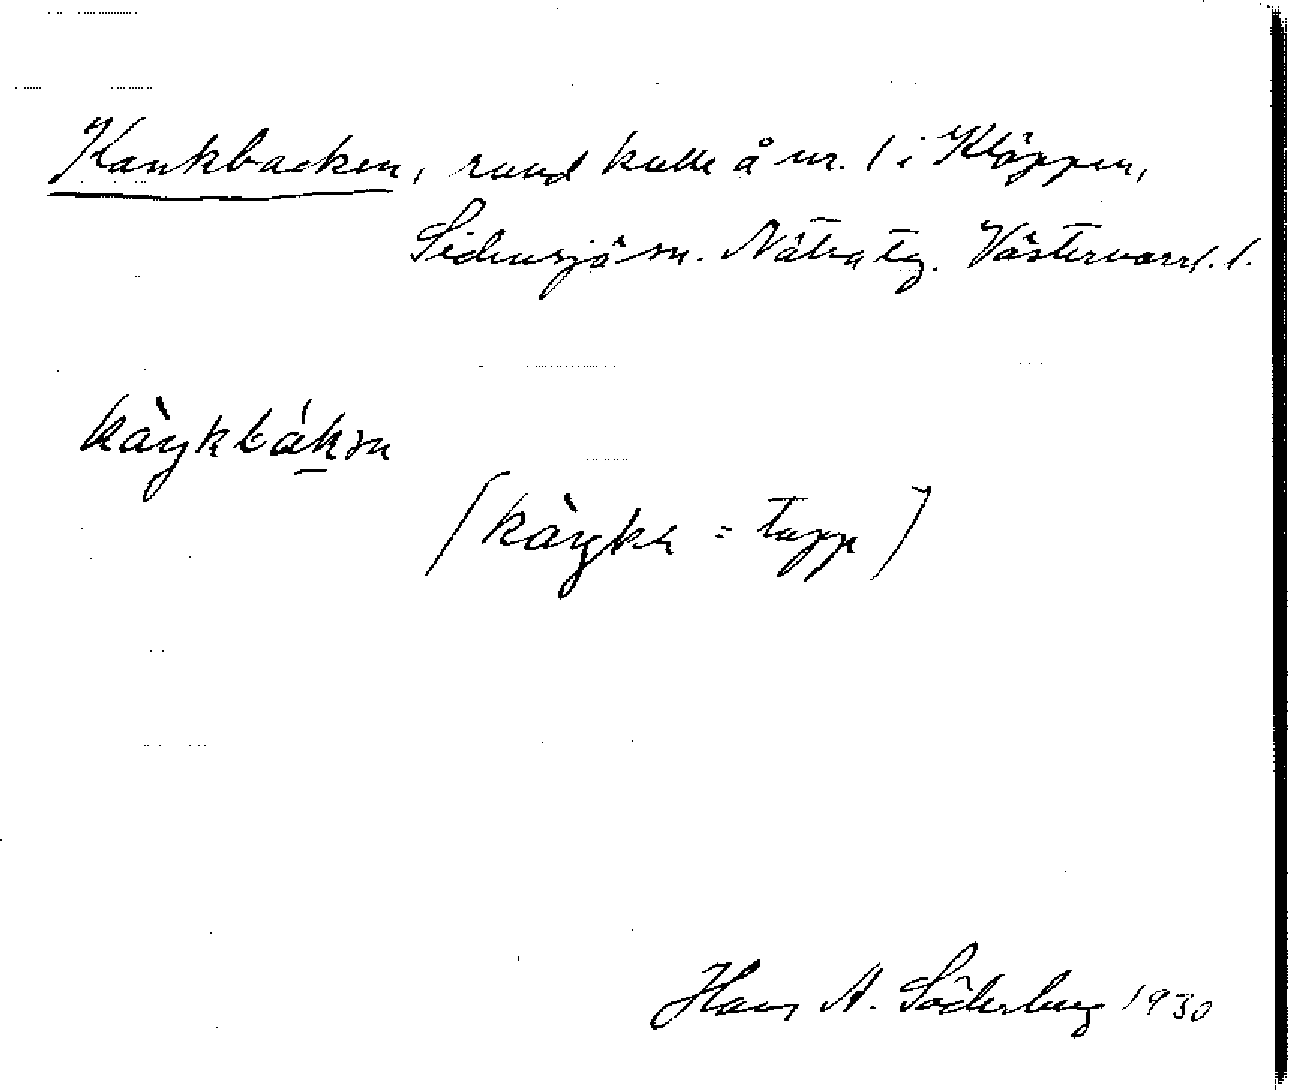 Kankbacken, rund kulle å nr. 1 i Kläppen,
Sidensjö sn. Nätra tg. Västernorrl. l.
kàŋkbákən
(kàŋkɐ = tapp)
Hans A. Söderberg 1930